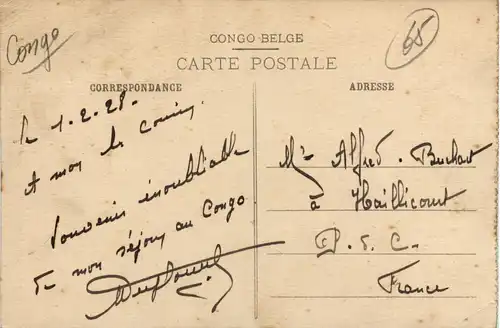 Congo
65
CONGO BELGE
CARTE POSTALE
CORRESPONDANCE
ADRESSE
le 1-2-28.
A mon cousin,
Souvenir inoubliable
de mon séjour au Congo
Mr Alfred. Buchart
à Haillicourt
P. d. C.
France